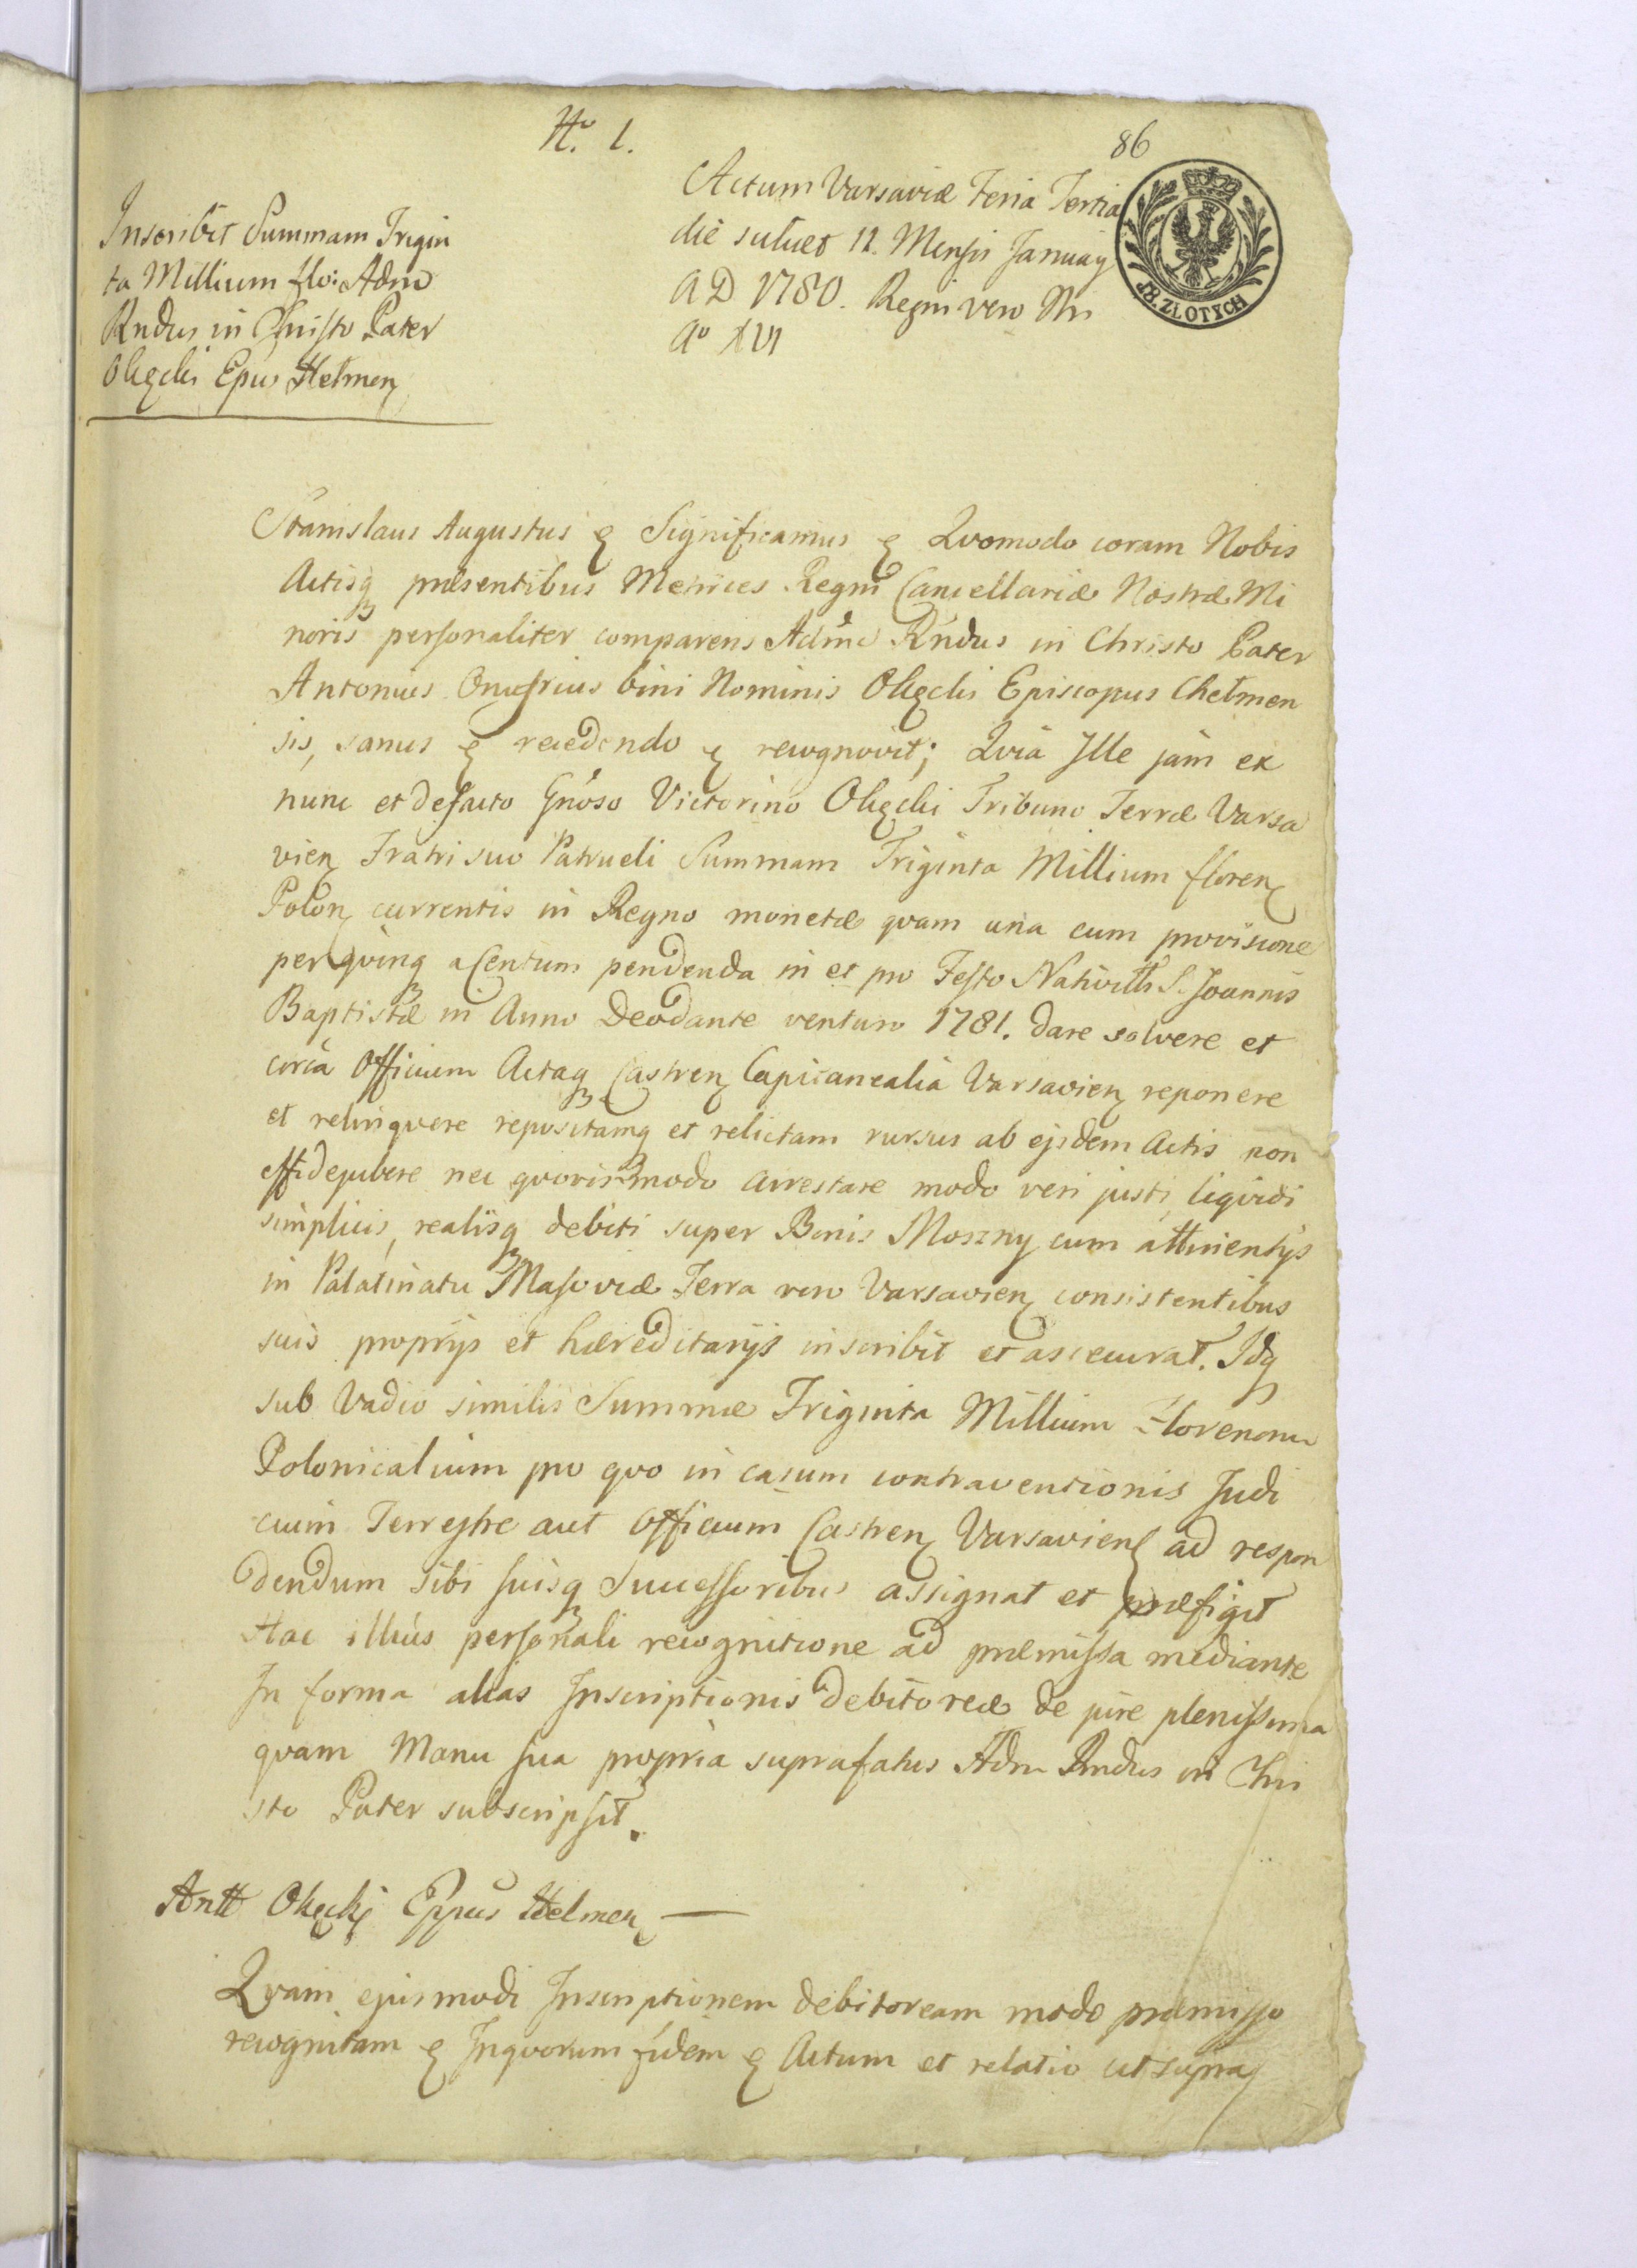 No. 1.
86
Inscribit Summam Trigin
ta Millium flo: Adm
Rndus in Christo Pater
Okęcki Epus Helmen
Actum Varsaviæ Feria Tertia
die scilicet 11. Mensis January
AD 1780. Regni vero Nri
Ao XVI
18. ZŁOTYCH
Stanislaus Augustus Significamus Quomodo coram Nobis
Actisq præsentibus Metrices Regni Cancellariæ Nostræ Mi
noris personaliter comparens Adm Rndus in Christo Pater
Antonius Onufrius bini Nominis Okęcki Episcopus Chełmen
sis, sanus recedendo recognovit; Quia Ille jam ex
nunc et defacto Gnoso Victorino Okęcki Tribuno Terræ Varsa
vien Fratri suo Patrueli Summam Triginta Millium floren
Polon currentis in Regno monetæ quam una cum provisione
per quinq a Centum pendenda in et pro Festo Nativitts S. Joannis
Baptistæ in Anno Deodante venturo 1781. dare solvere et
circa Officium Actaq Castren Capitanealia Varsavien reponere
et relinquere repositamq et relictam rursus ab ejsdem Actis non
nec quovismodo arrestare modo veri justi, liquidi
simplicis, realisq debiti super Bonis Moszny cum attinentijs
in Palatinatu Masoviæ Terra vero Varsavien consistentibus
suis proprijs et hæreditarijs inscribit et assecurat. Idq
sub Vadio similis Summæ Triginta Millium Florenorum
Polonicalium pro quo in casum contraventionis Judi
cium Terrestre aut Officium Castren Varsavien ad respon
dendum sibi suisq Successoribus assignat et præfigit
Hac illius personali recognitione ad præmissa mediante
In forma alias Inscriptionis debitoreæ de jure plenissima
quam Manu sua propria suprafatus Adm Rndus in Chri
sto Pater subscripsit.
Antt Okęcki Eppus Helmen
Quam ejusmodi Inscriptionem debitoream modo præmisso
recognitam Inquorum fidem Actum et relatio ut supra